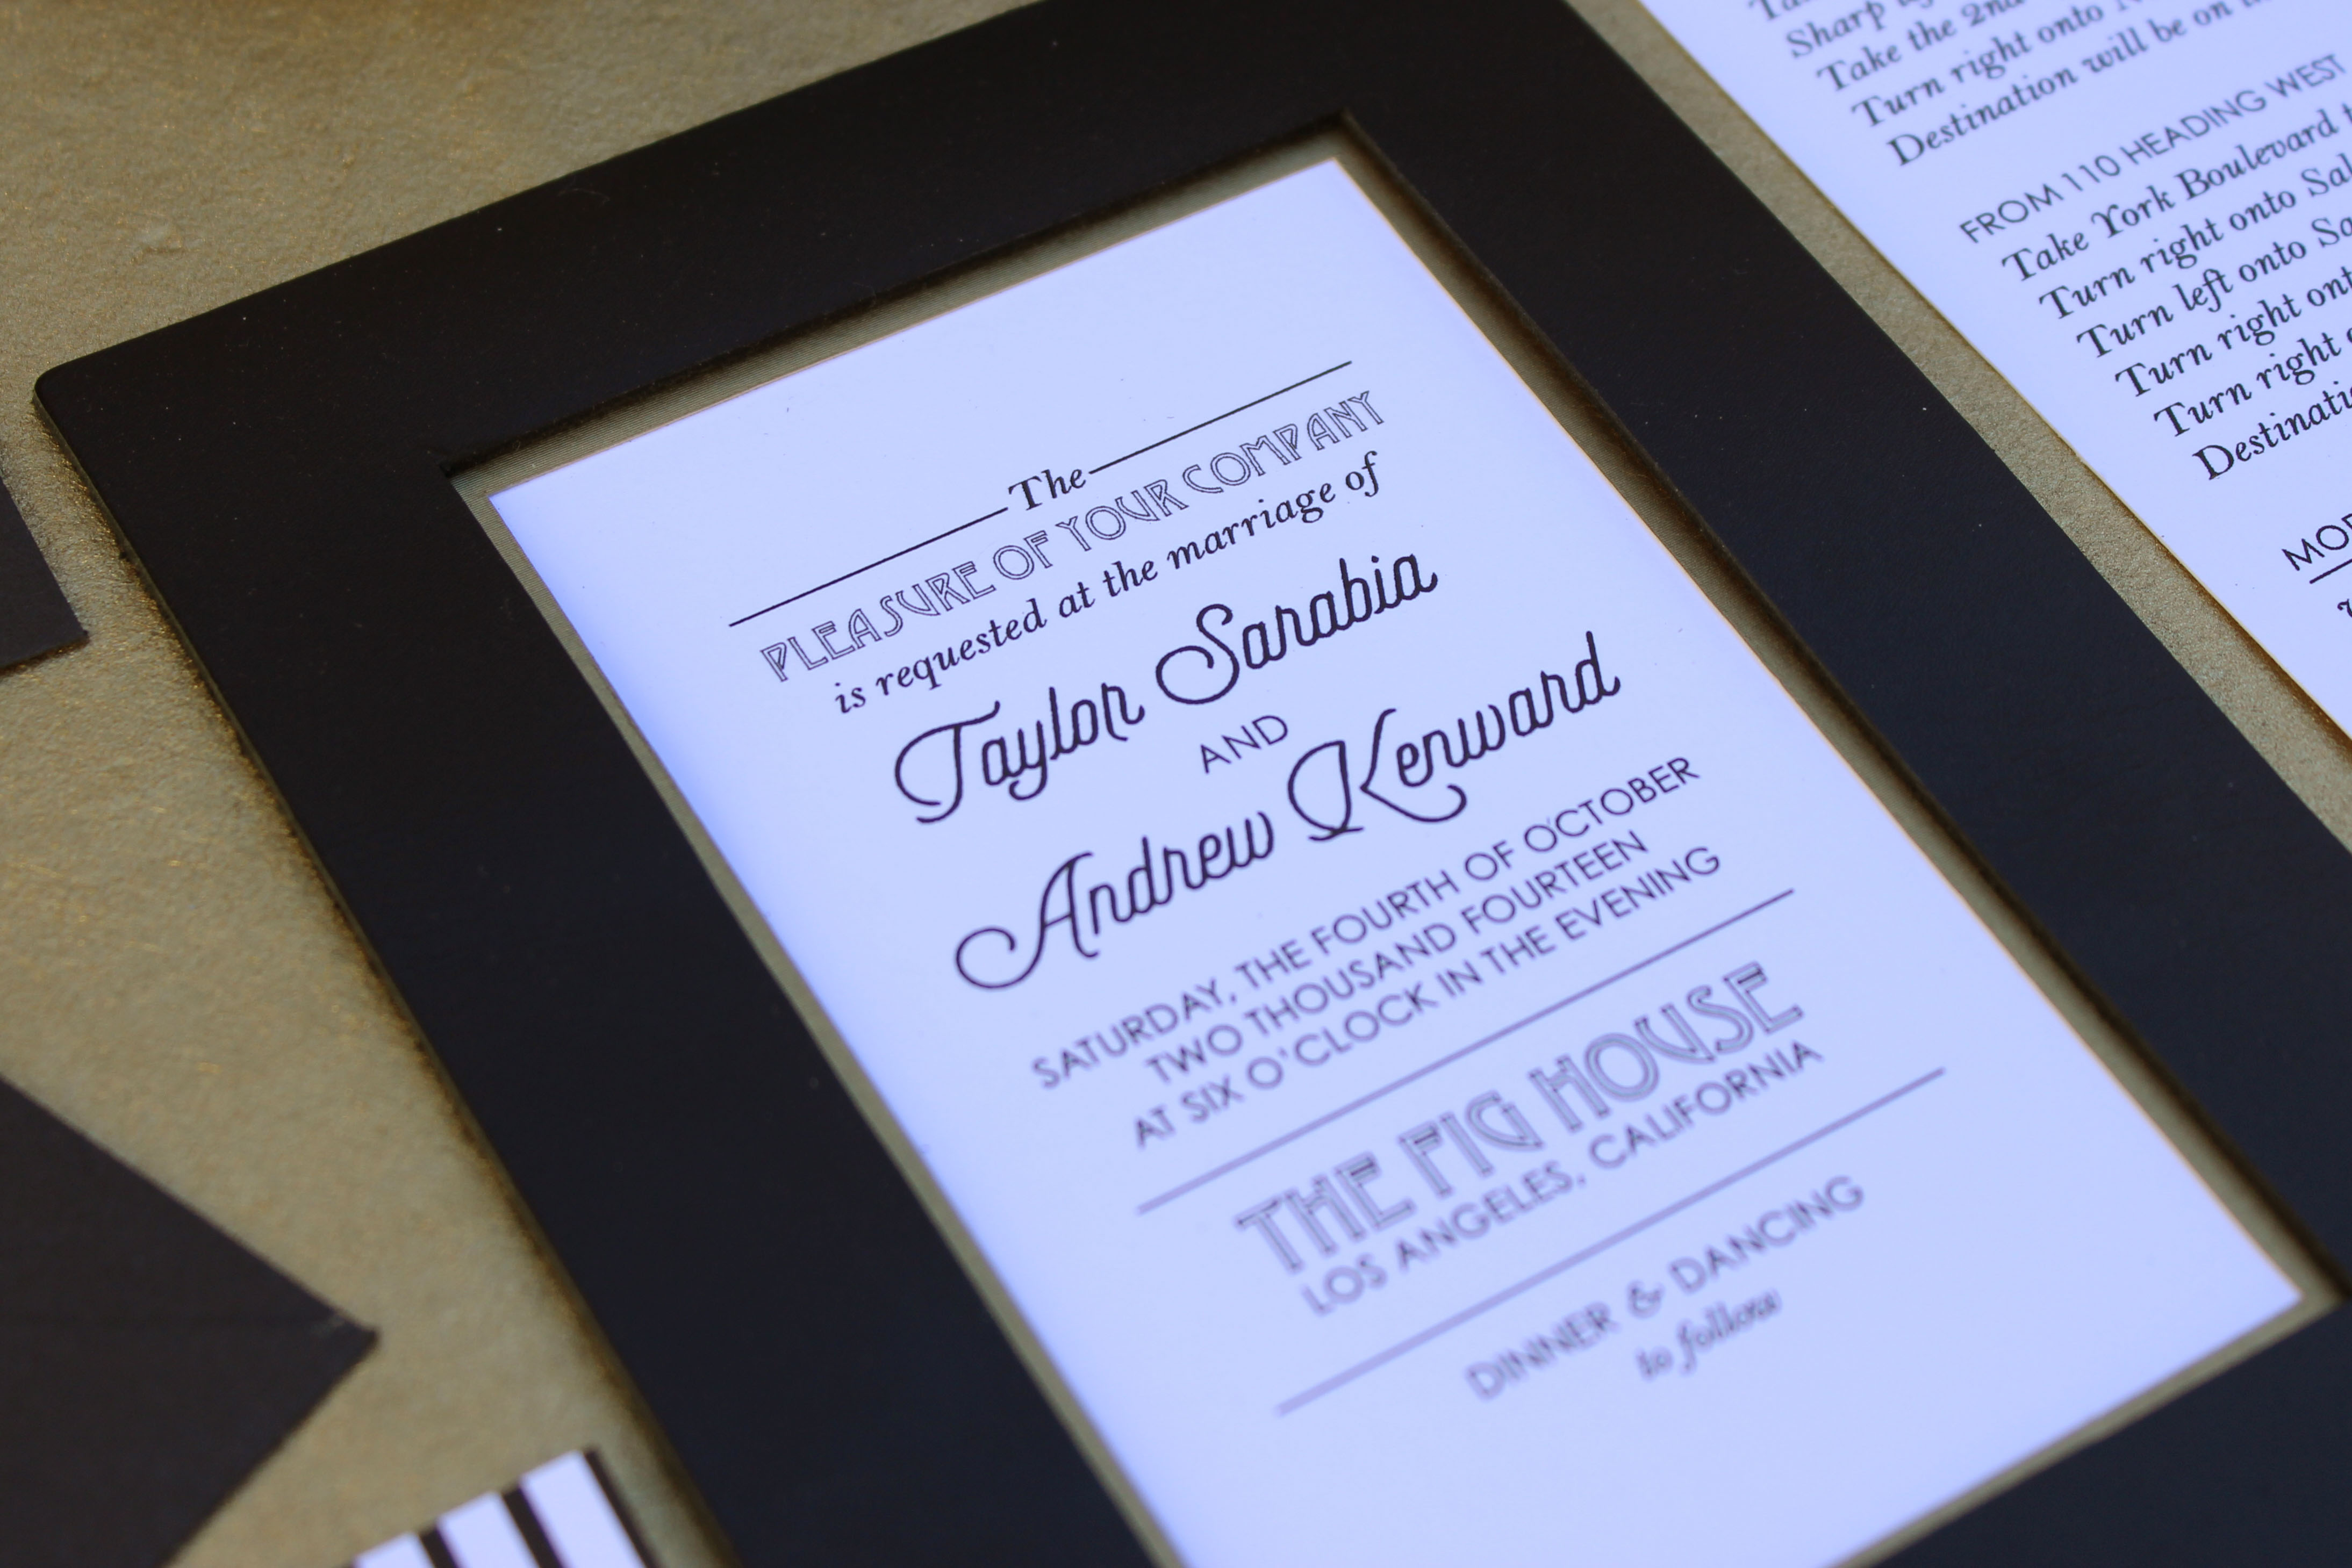 The
PLEASURE OF YOUR COMPANY
is requested at the marriage of
Taylor Sarabia
AND
Andrew Kenward
SATURDAY, THE FOURTH OF OCTOBER
TWO THOUSAND FOURTEEN
AT SIX O'CLOCK IN THE EVENING
THE FIG HOUSE
LOS ANGELES, CALIFORNIA
DINNER & DANCING
to follow
Sharp
Take the 2nd
Turn right onto
Destination will be on
FROM 110 HEADING WEST
Take York Boulevard
Turn right onto
Turn left onto
Turn right
Turn right